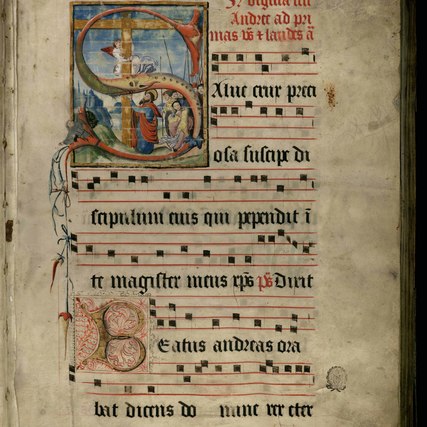 In vigilia sci
Andree ad pri
mas vs̄ & laudes ā
Salue crux preci
osa suscipe di
scipulum eius qui pependit ī
te magister meus xp̄s ps̄ Dixit
Beatus andreas ora
bat dicens do mine rex eter